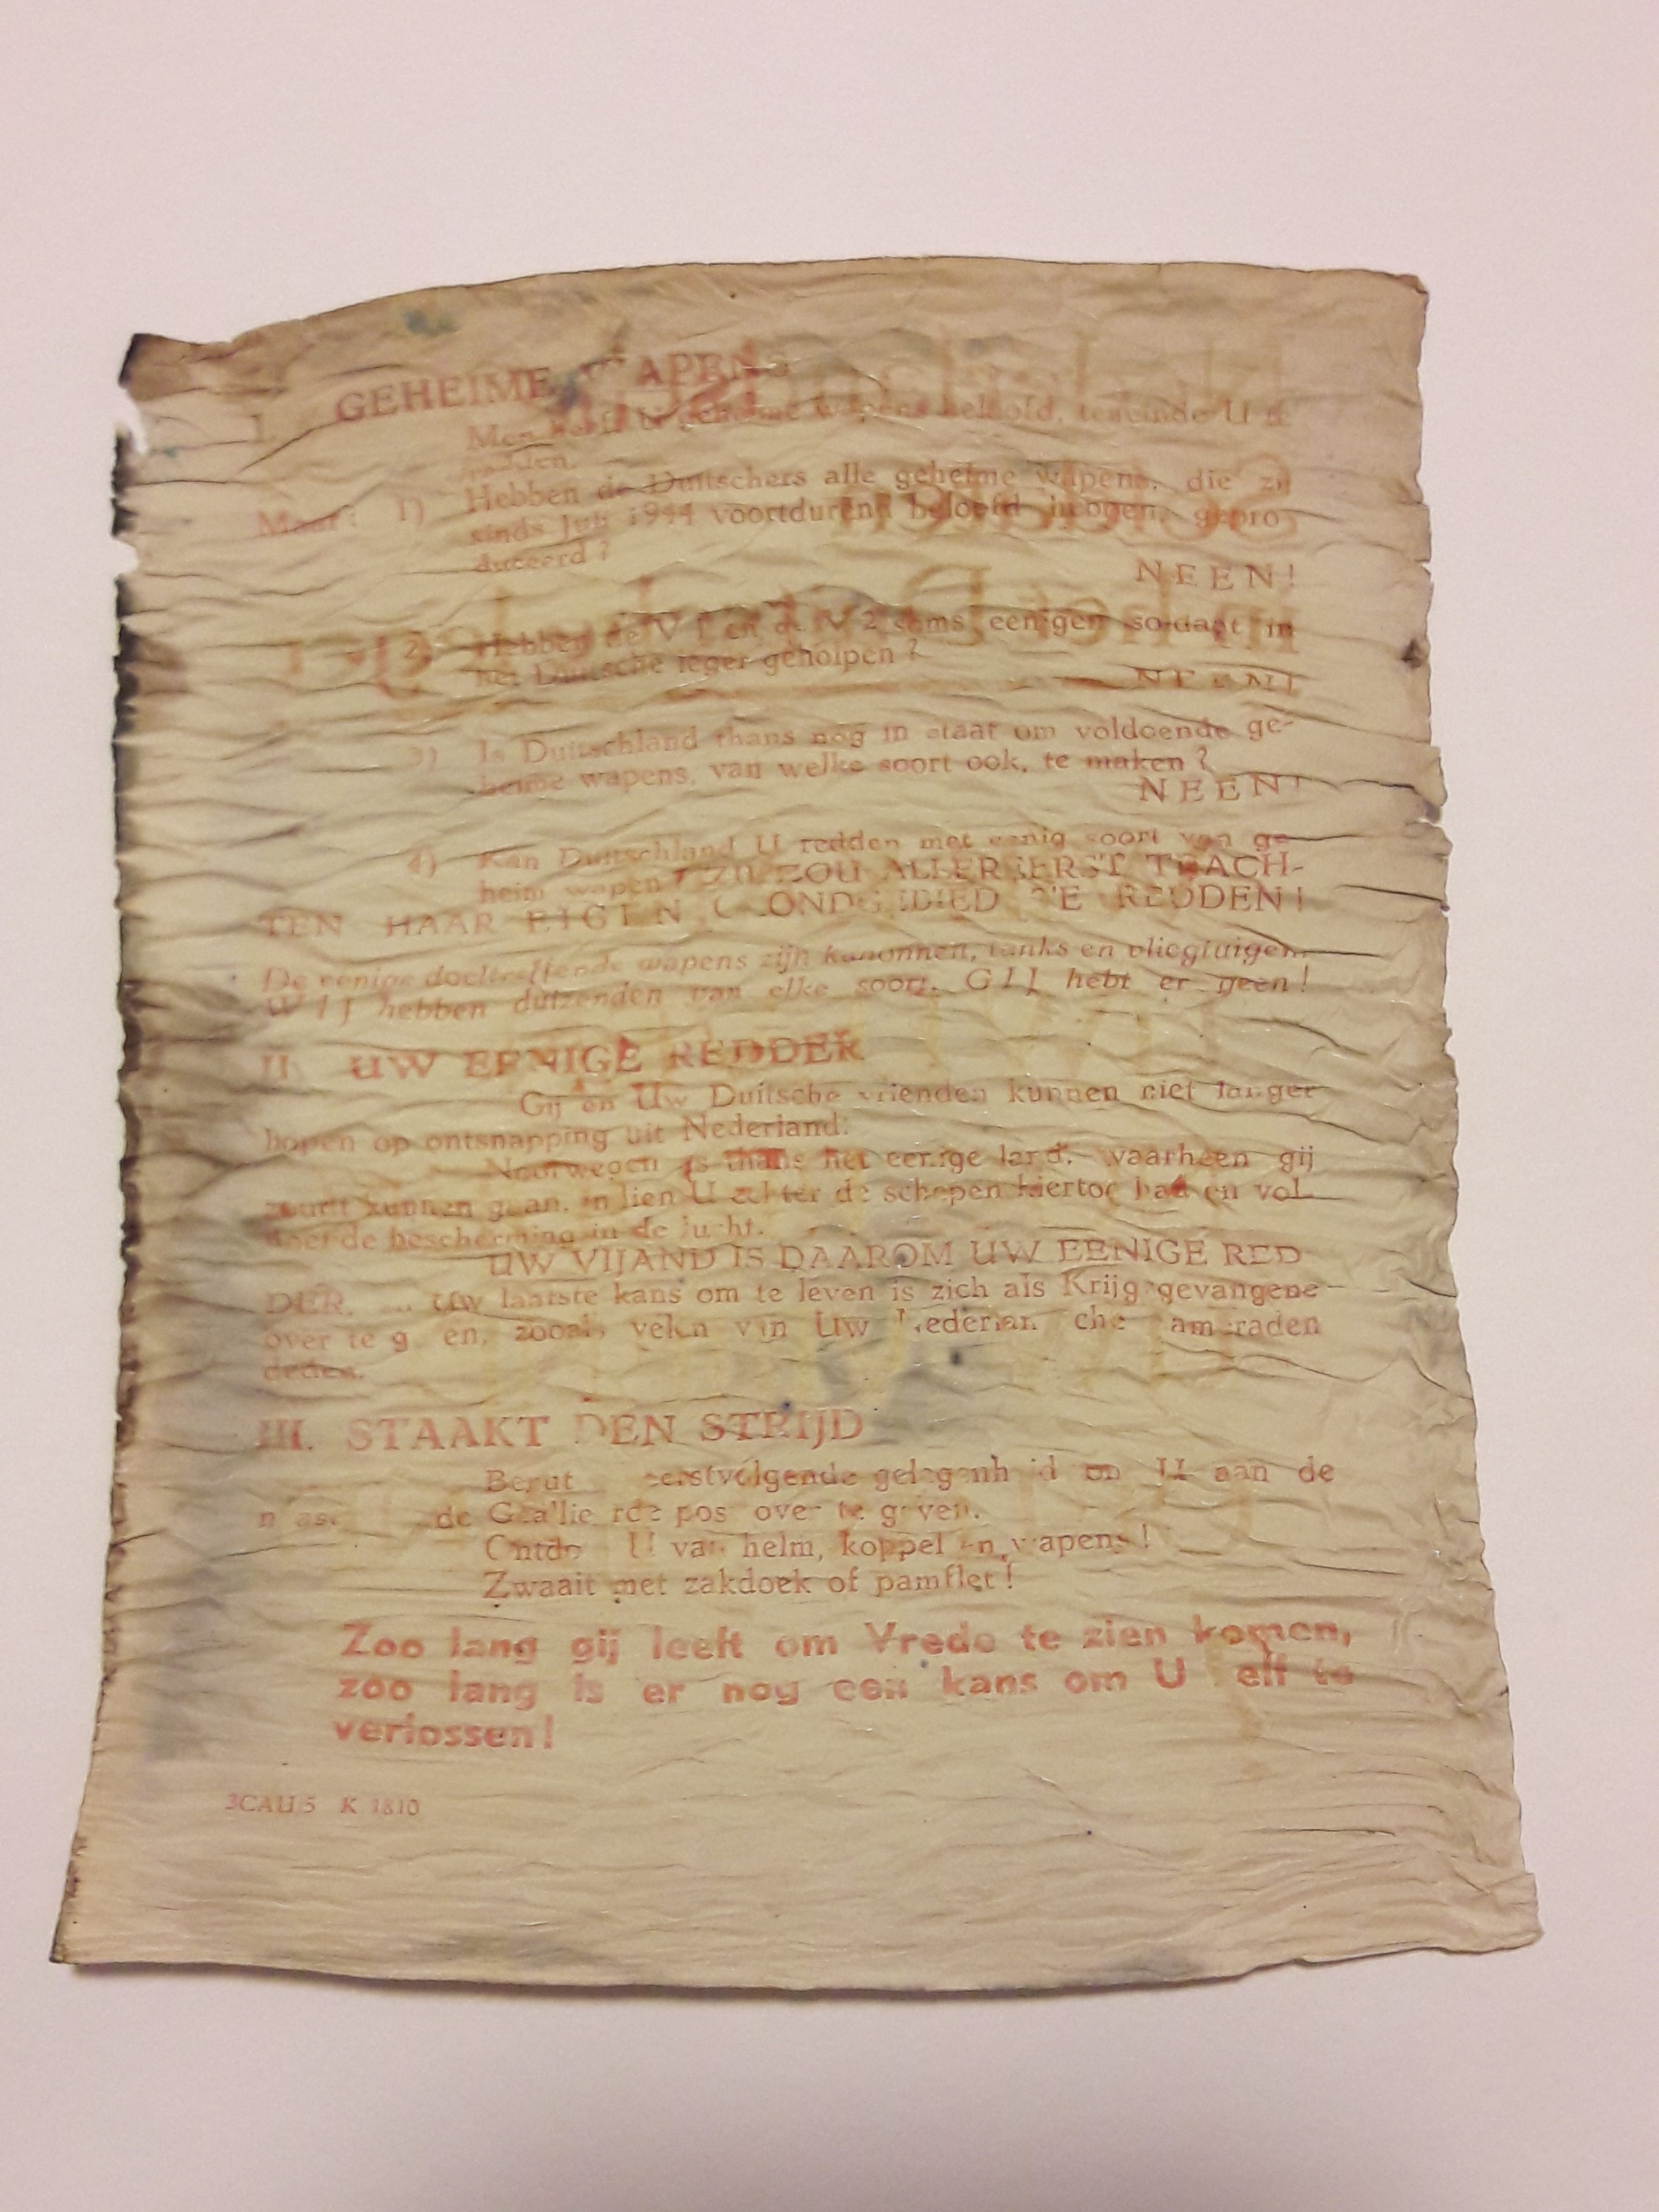 I. GEHEIME WAPENS
Men heeft U geheime wapens beloofd, teneinde U te
redden.
Maar: 1) Hebben de Duitschers alle geheime wapens, die zij
sinds Juli 1944 voortdurend beloofd hebben, gepro-
duceerd?
NEEN!
2) Hebben de V 1 en de V 2 soms eenigen soldaat in
het Duitsche leger geholpen?
NEEN!
3) Is Duitschland thans nog in staat om voldoende ge-
heime wapens, van welke soort ook, te maken?
NEEN!
4) Kan Duitschland U redden met eenig soort van ge-
heim wapen? ZIJ ZOU ALLEREERST TRACH-
TEN HAAR EIGEN GRONDGEBIED TE REDDEN!
De eenige doeltreffende wapens zijn kanonnen, tanks en vliegtuigen.
WIJ hebben duizenden van elke soort. GIJ hebt er geen!
II. UW EENIGE REDDER
Gij en Uw Duitsche vrienden kunnen niet langer
hopen op ontsnapping uit Nederland.
Noorwegen is thans het eenige land, waarheen gij
zoudt kunnen gaan, indien U echter de schepen hiertoe had en vol-
doende bescherming in de lucht.
UW VIJAND IS DAAROM UW EENIGE RED
DER, en Uw laatste kans om te leven is zich als Krijgsgevangene
over te geven, zooals velen van Uw Nederlandsche kameraden
deden.
III. STAAKT DEN STRIJD
eerstvolgende gelegenheid om U aan de
de Geallieerde post over te geven.
Ontdoe U van helm, koppel en wapens!
Zwaait met zakdoek of pamflet!
Zoo lang gij leeft om Vrede te zien komen,
zoo lang is er nog een kans om U zelf te
verlossen!
3CAU/5 K 1810